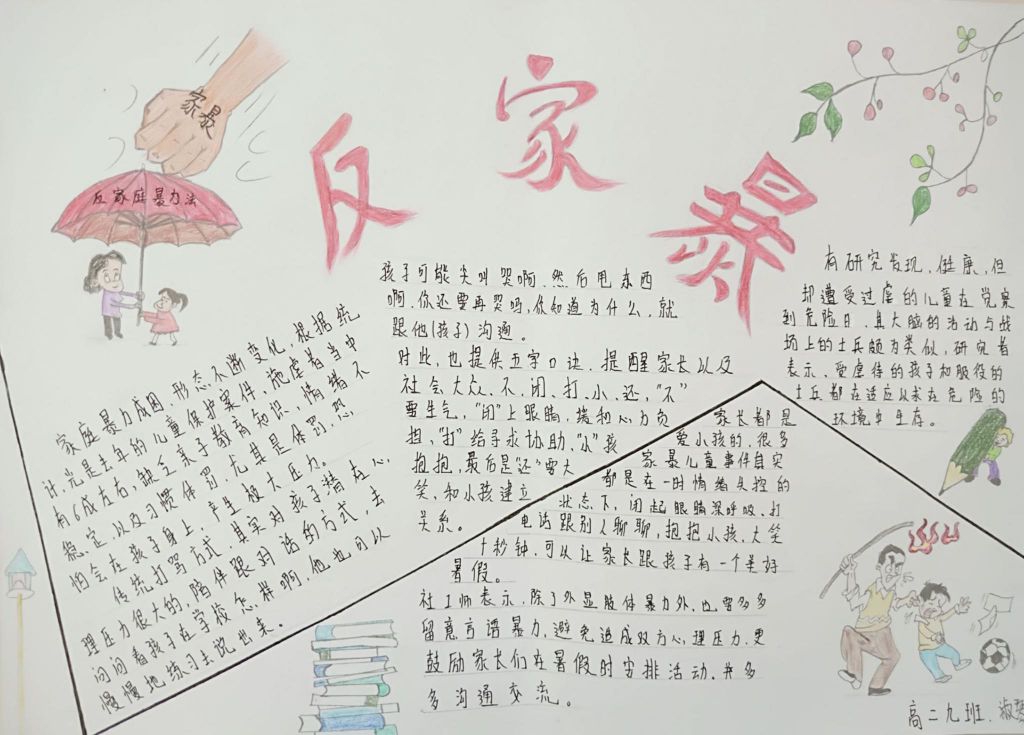 家暴
反家庭暴力法
反家暴
家庭暴力成因形态不断变化,根据统
计,光是去年的儿童保护案件,施虐者当中
有6成左右,缺乏亲子教育知识,情绪不
稳定,以及习惯体罚,尤其是体罚,恐
怕会在孩子身上,产生极大压力。
传统打骂方式,其实对孩子潜在心
理压力很大的,陪伴跟对话的方式,去
问问看孩子在学校怎样啊,他也可以
慢慢地练习去说出来。
孩子可能尖叫哭啊.然后甩东西
啊.你还要再哭吗,你知道为什么,就
跟他(孩子)沟通。
对此,也提供五字口诀,提醒家长以及
社会大众、不、闭、打、小、还,“不”
要生气,“闭”上眼睛,缓和心力负
担,“打”给寻求协助、“小”孩
抱抱,最后是“还”要大
笑、和小孩建立
关系。
家长都是
爱小孩的,很多
家暴儿童事件自实
都是在一时情绪失控的
状态下,闭起眼睛深呼吸、打
电话跟别人聊聊,抱抱小孩、大笑
十秒钟,可以让家长跟孩子有一个美好
暑假。
社工师表示,除了外显肢体暴力外,也要多多
留意言语暴力,避免造成双方心理压力.更
鼓励家长们在暑假时安排活动.并多
多沟通交流。
有研究发现,健康,但
却遭受过虐的儿童在觉察
到危险日,其大脑的活动与战
场上的士兵颇为类似,研究者
表示、受虐待的孩子和服役的
士兵都在适应以求在危险的
环境中生存。
高二九班.淑